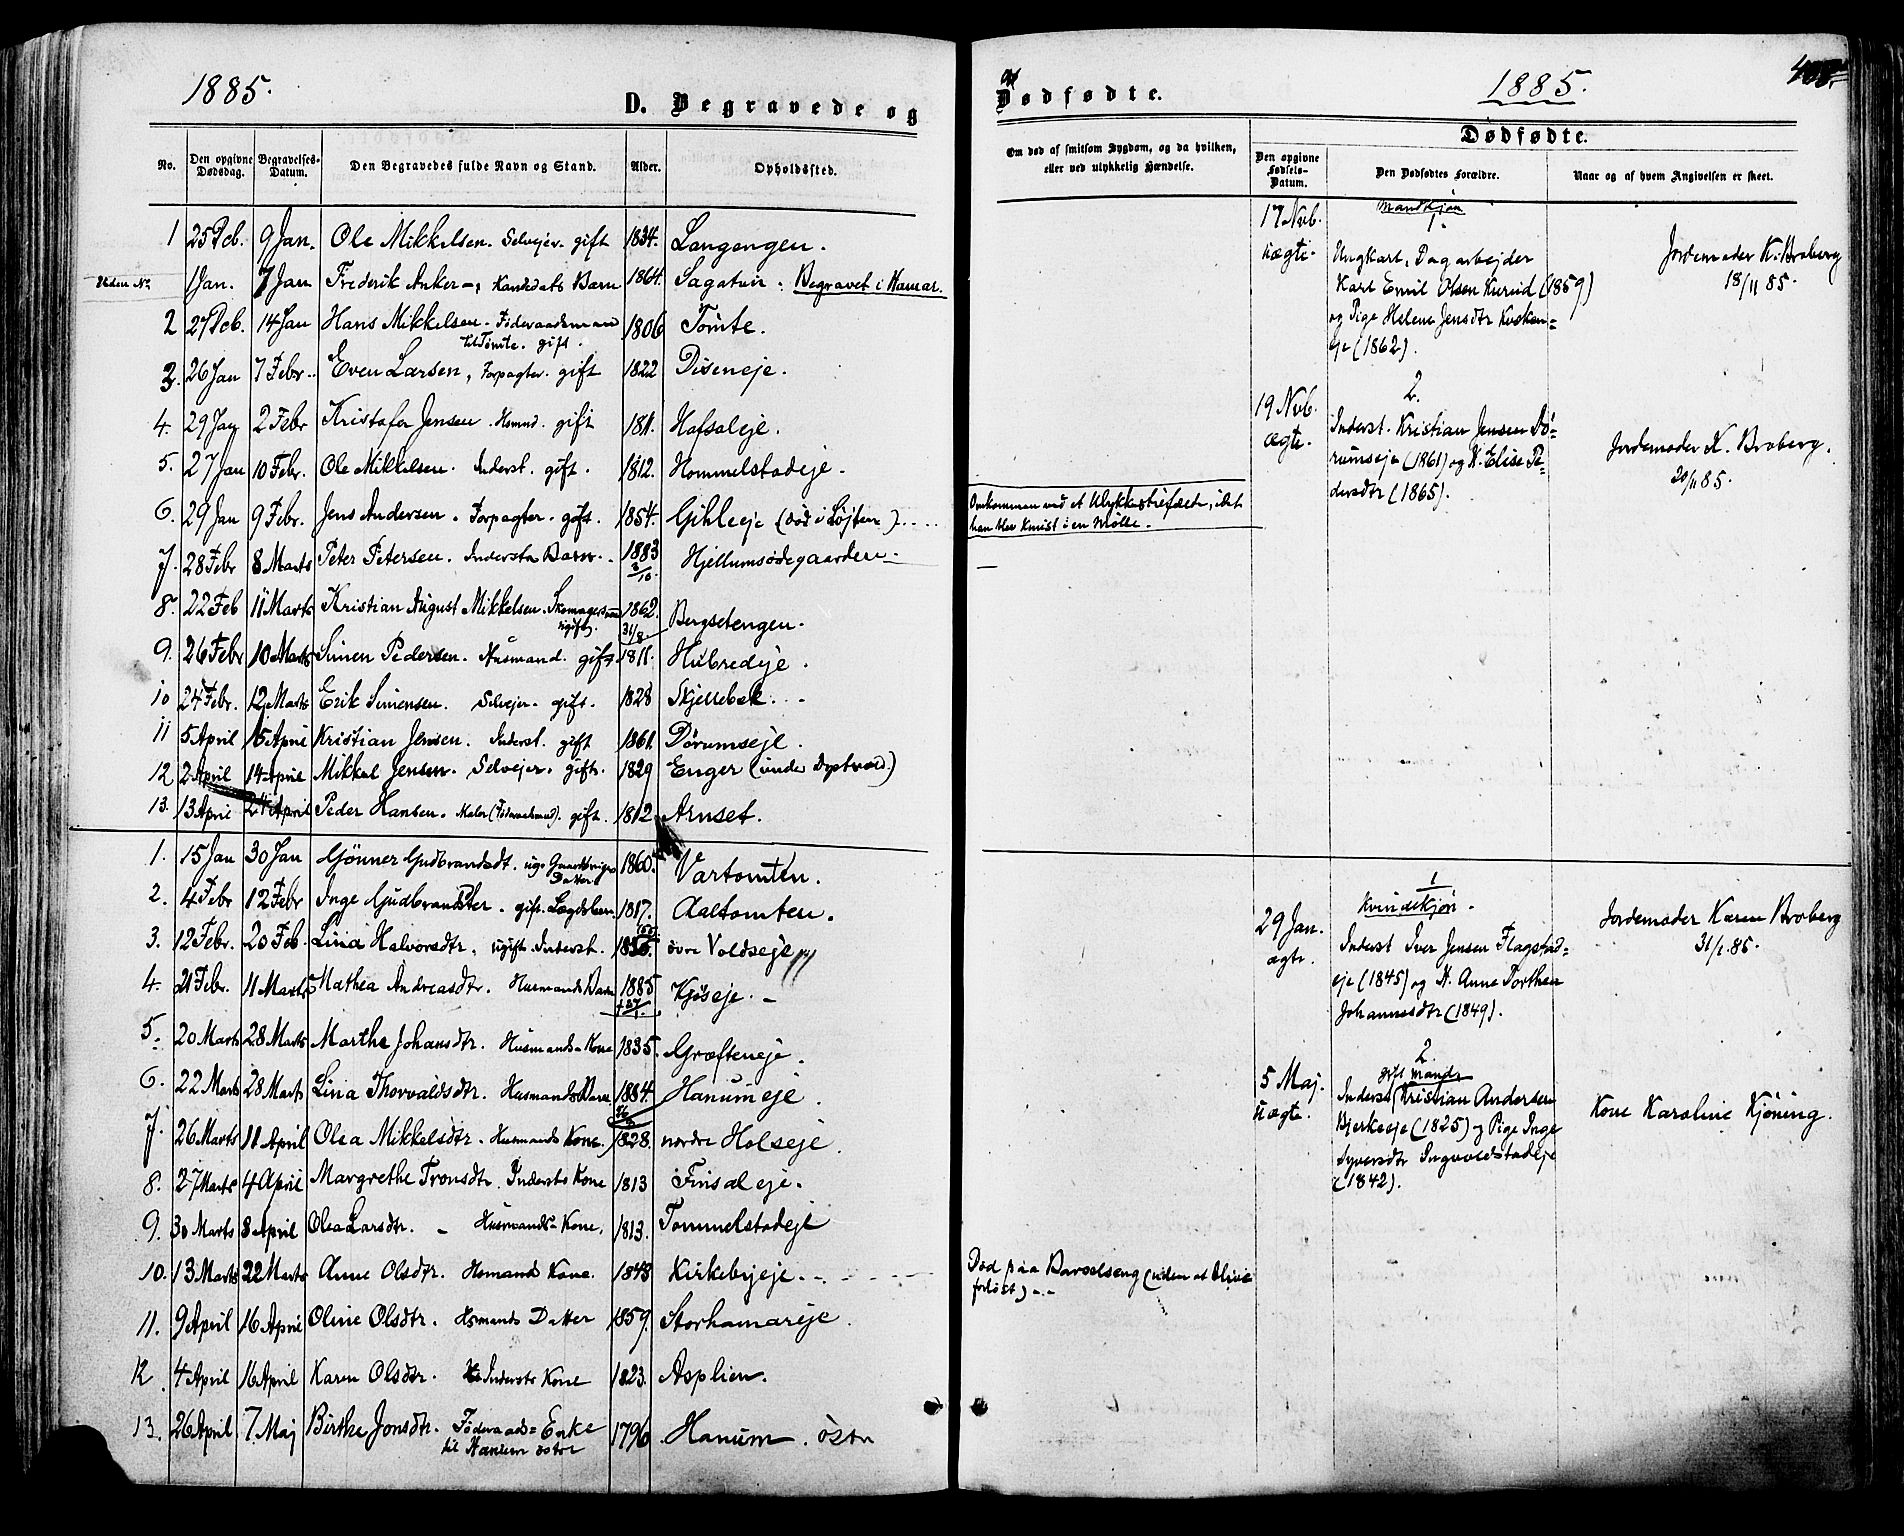 1885.
D. Begravede og
No.
Den opgivne Dødsdag.
Begravelses-Datum.
Den Begravedes fulde Navn og Stand.
Alder.
Opholdssted.
1 25 Dcb. 9 Jan. Ole Mikkelsen. Selvejer. gift 1834. Langengen.
Uden No. 1 Jan. 7 Jan Frederik Anker -, Kandidats Barn 1864. Sagatun. Begravet i Hamar.
2 27 Dcb. 14 Jan Hans Mikkelsen. Føderaadsmand 1806 Tomte.
til Tomte. gift.
3. 26 Jan 7 Febr. Even Larsen, Forpagter. gift 1822 Diseneje.
4. 29 Jan 2 Febr Kristofer Jensen. Hsmnd. gift 1811. Hofsoleje.
5. 27 Jan 10 Febr. Ole Mikkelsen. Inderst. gift. 1812. Hommelstadeje.
6. 29 Jan 9 Febr. Jens Andersen. Forpagter. gift. 1854. Gihleeje (død i Løjten)
7. 28 Febr 8 Marts Peter Petersen. Inderste Barn. 1883 Hjellumsødegaarden
8. 22 Feb 11 Marts Kristian August Mikkelsen. 1862. Bergsetengen.
ugift. 31/8
9. 26 Febr 10 Marts Simen Pedersen. Husmand. gift 1811. Hubredeje.
10 24 Febr. 12 Marts Erik Simensen. Selvejer. gift. 1828 Skjellebek.
11 5 April 15 April Kristian Jensen. Inderst. gift 1861. Dørumseje.
12 2 April 14 April Mikkel Jensen. Selvejer. gift. 1829 Enger (under Dystvold.)
13. 13 April 24 April Peder Hansen. Maler (Føderaadsmnd). gift. 1812 Arnset.
1. 15 Jan 30 Jan Gønner Gudbrandsdt. ug. 1860. Vartomten.
Datter
2. 4 Febr 12 Febr Inge Gudbrandsdter. gift. Lægdslem. 1817. Aaltomten.
3. 12 Febr. 20 Feb. Lina Halvorsdtr. ugift. Inderst. øvre Voldseje
4. 21 Febr. 11 Marts Mathea Andreasdtr. Husmands Barn 1885 Kjøseje.
5. 20 Marts 28 Marts Marthe Johansdtr. Husmands Kone 1835. Græfteneje.
6. 22 Marts 28 Marts Lina Thorvaldsdtr. Husmands Barn 1884. Hanumeje.
7. 26 Marts 11 April Olea Mikkelsdtr. Husmands Kone. 1828. nordre Holseje.
8. 27 Marts 4 April Margrethe Tronsdtr. Inderst Kone 1813 Finsaleje.
9. 30 Marts 8 April Olea Larsdtr. - Husmands Kone. 1813. Tommelstadeje
10. 13 Marts 22 Marts Anne Olsdtr. Hsmand Kone. 1843 Kirkebyeje.
11. 9 April 16 April Oline Olsdtr. Hsmands Datter 1859. Storhamareje.
12. 4 April 16 April Karen Olsdtr. Inderst Kone 1823. Asplien.
13. 26 April 7. Maj Birthe Jonsdtr. Føderaads= Enke 1796. Hanum. østre
til Hanum østre
Dødfødte.
1885.
408.
Om død af smitsom Sygdom, og da hvilken, eller ved ulykkelig Hændelse.
Dødfødte.
Den opgivne Fødsels-Datum.
Den Dødfødtes Forældre.
Naar og af hvem Angivelsen er skeet.
Mandkjøn
1.
17 Nvb. uægte. Ungkarl, Dagarbejder Jordemoder K. Broberg
Karl Emil Olsen Kurud (1859) 18/11 85.
og Pige Helene Jensdtr
eje (1862).
2.
19 Nvb. ægte. Inderst. Kristian Jensen Dø-
rumseje (1861) og K. Elise Pe- Jordemoder K. Broberg.
dersdtr (1865). 20/11 85.
Omkommen ved et Ulykkestilfælde, idet
han blev knust i en Mølle.
1
Kvindekjøn.
29 Jan. ægte. Inderst Iver Jensen Flagstad- Jordemoder Karen Broberg
eje (1845) og K. Anne Dorthea 31/1 85.
Johannesdtr (1849).
2.
gift Mand
5 Maj. uægte. Inderst Kristian Andersen
Bjerkeeje (1825) og Pige Inge Kone Karoline Kjøning.
Syversdtr Ingvoldstadeje
(1842).
Død paa Barselseng (uden at blive
forløst)